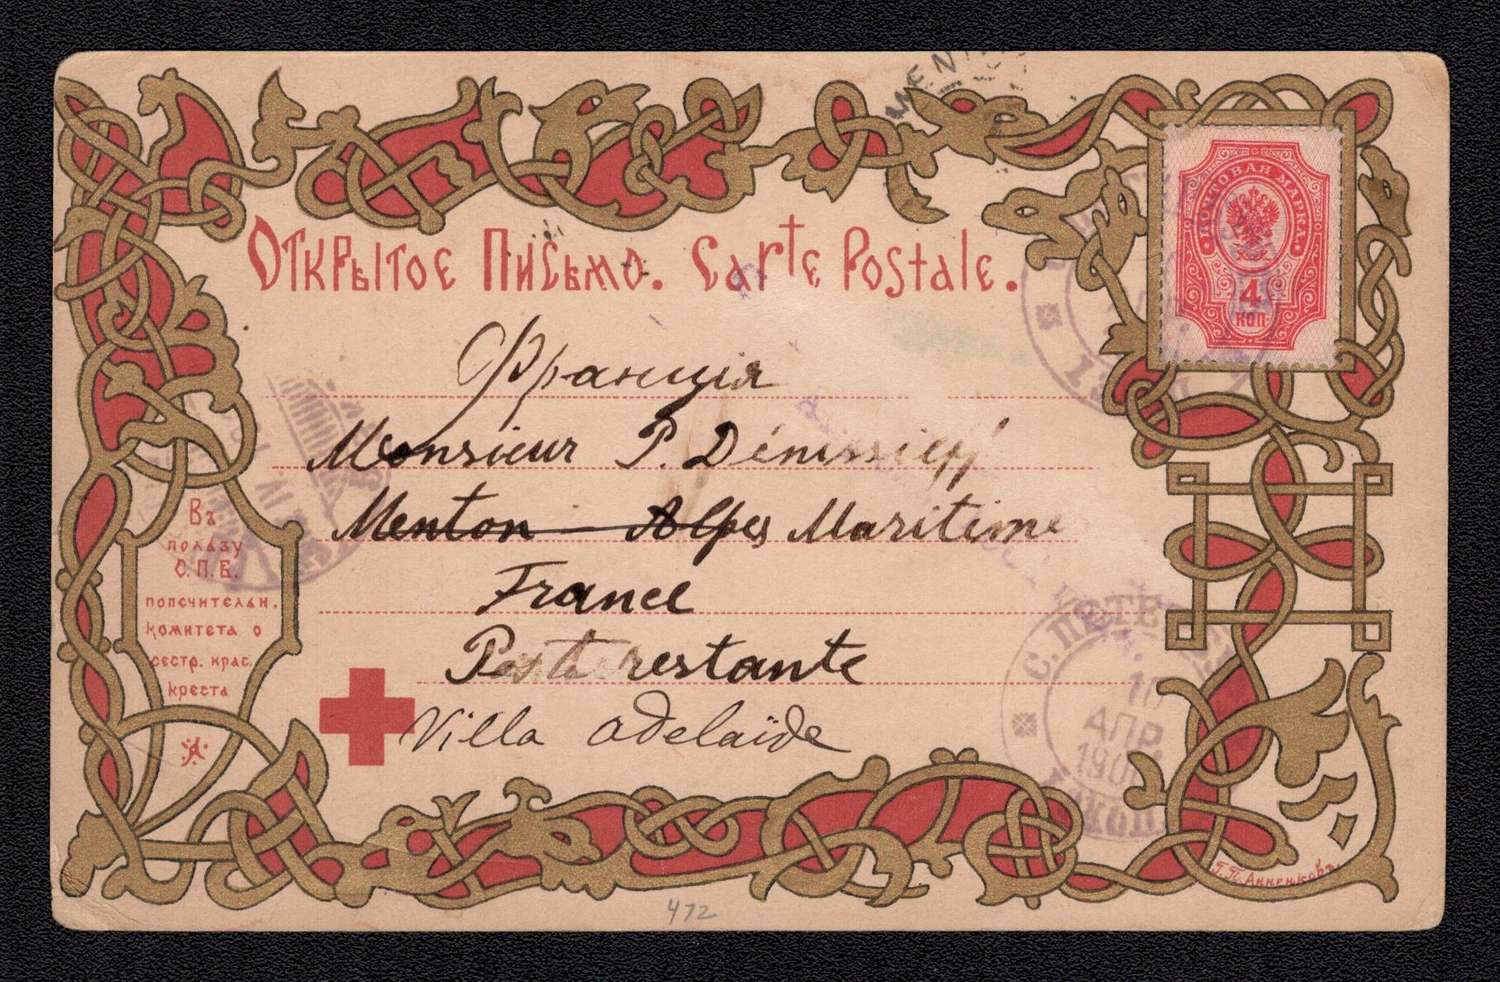 MENT
Открытое Письмо. Carte Postale.
ПОЧТОВАЯ МАРКА
4
КОП.
Франція
Monsieur P. Démissieff
Menton Alpes Maritime
France
Poste restante
Villa Adelaïde
Въ
пользу
С.П.Б.
попечительн.
комитета о
сестр. крас.
креста
С.ПЕТЕРБУ
10
АПР.
190
472
Г.П.Анненковъ